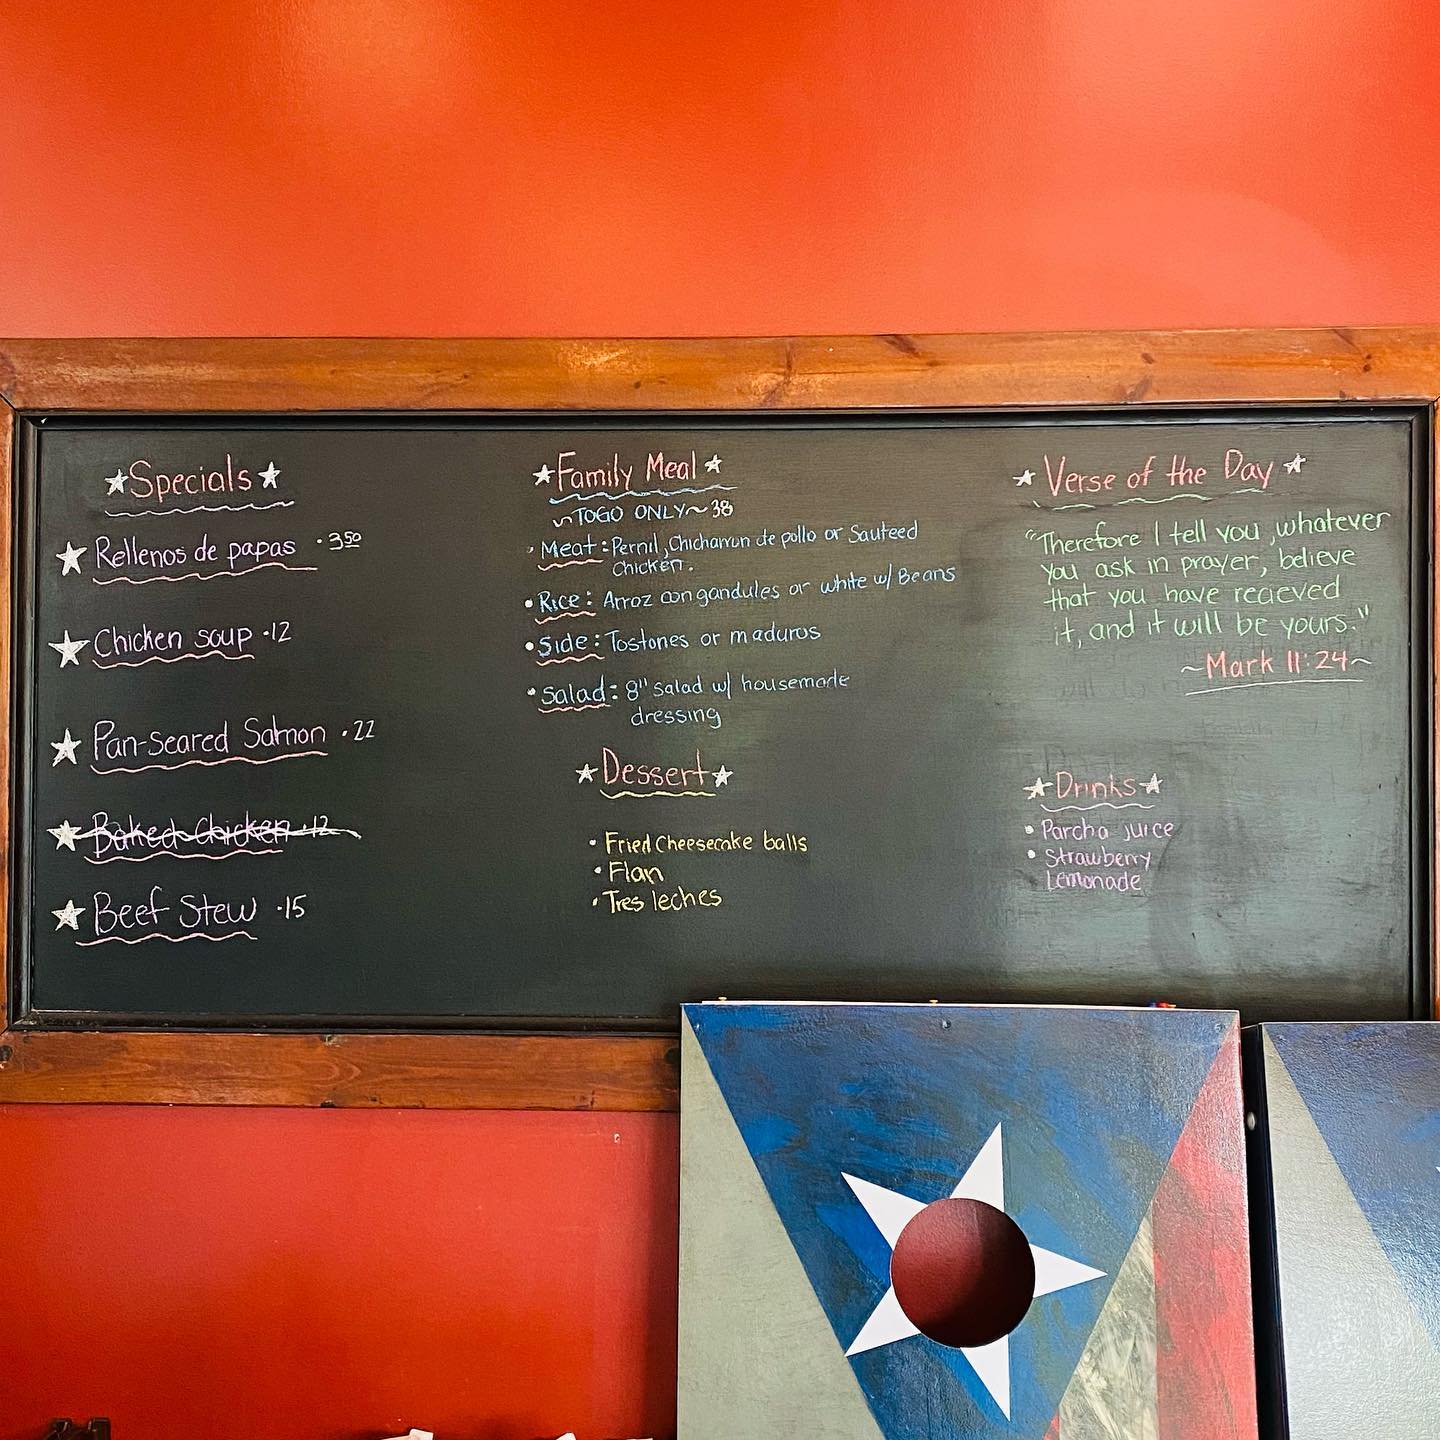 Specials
Rellenos de papas · 3.50
Chicken soup · 12
Pan-seared Salmon · 22
Baked Chicken · 12
Beef Stew · 15
Family Meal
~TOGO ONLY~ 38
· Meat: Pernil, Chicharron de pollo or Sauteed
Chicken.
• Rice: Arroz con gandules or white w/ Beans
• Side: Tostones or maduros
• Salad: 8" salad w/ housemade
dressing
Dessert
• Fried Cheesecake balls
• Flan
• Tres leches
Verse of the Day
"Therefore I tell you, whatever
you ask in prayer, believe
that you have recieved
it, and it will be yours."
~Mark 11:24~
Drinks
• Parcha juice
• Strawberry
Lemonade